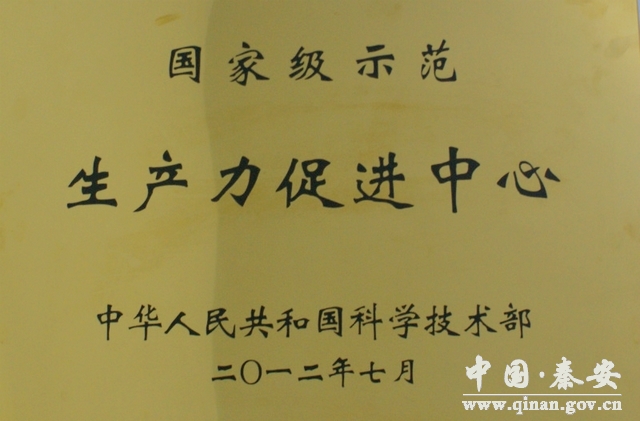 国家级示范
生产力促进中心
中华人民共和国科学技术部
二〇一二年七月
中国·秦安
www.qinan.gov.cn